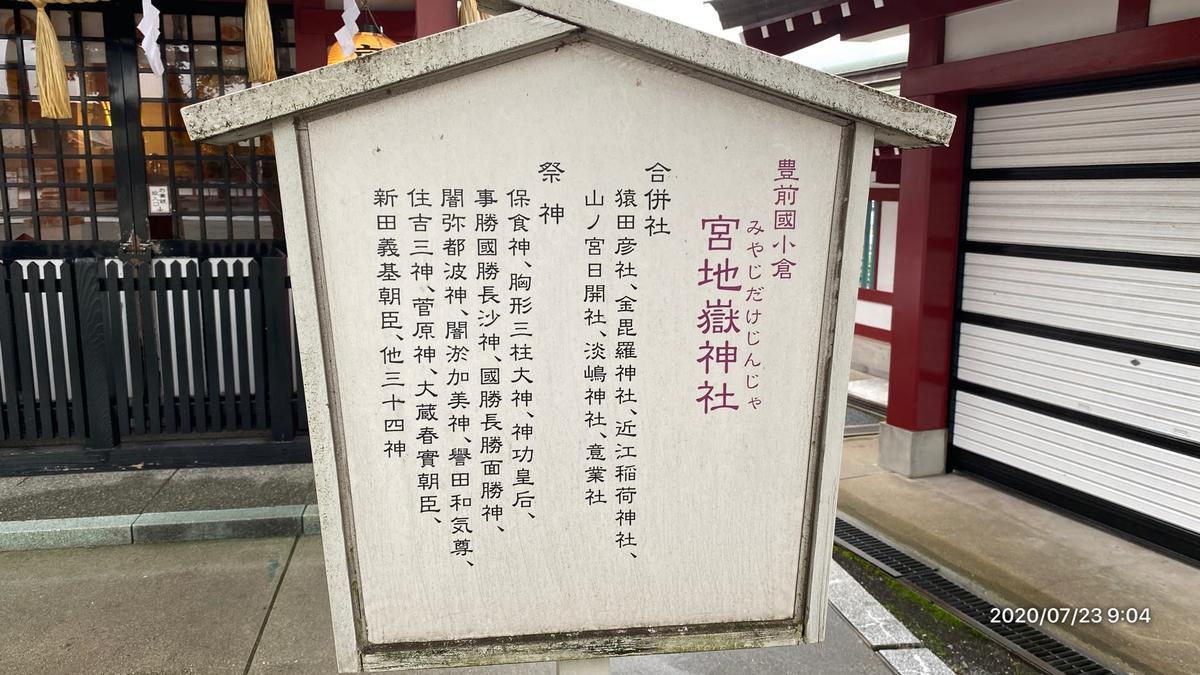 豊前國小倉
みやじだけじんじゃ
宮地嶽神社
合併社
猿田彦社、金毘羅神社、近江稲荷神社、
山ノ宮日開社、淡嶋神社、意業社
祭神
保食神、胸形三柱大神、神功皇后、
事勝國勝長沙神、國勝長勝面勝神、
闇弥都波神、闇淤加美神、譽田和気尊、
住吉三神、菅原神、大蔵春實朝臣、
新田義基朝臣、他三十四神
2020/07/23 9:04